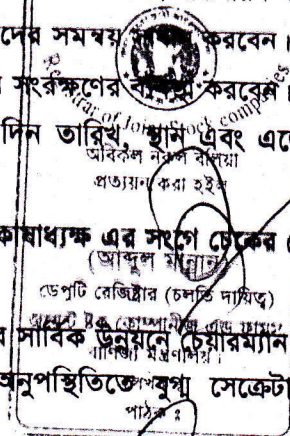 দের সমন্বয় করবেন।
Registrar of Joint Stock Companies
সংরক্ষণের করবেন।
দিন তারিখ, স্থান এবং এ
অবিকল নকল বলিয়া
প্রত্যয়ন করা হইল
কোষাধ্যক্ষ এর সংগে চেকের
(আব্দুল মান্নান)
ডেপুটি রেজিষ্ট্রার (চলতি দায়িত্ব)
সার্বিক উন্নয়নে চেয়ারম্যান
বাণিজ্য মন্ত্রণালয়।
অনুপস্থিতিতে যুগ্ম সেক্রেটা
পাঠক ঃ